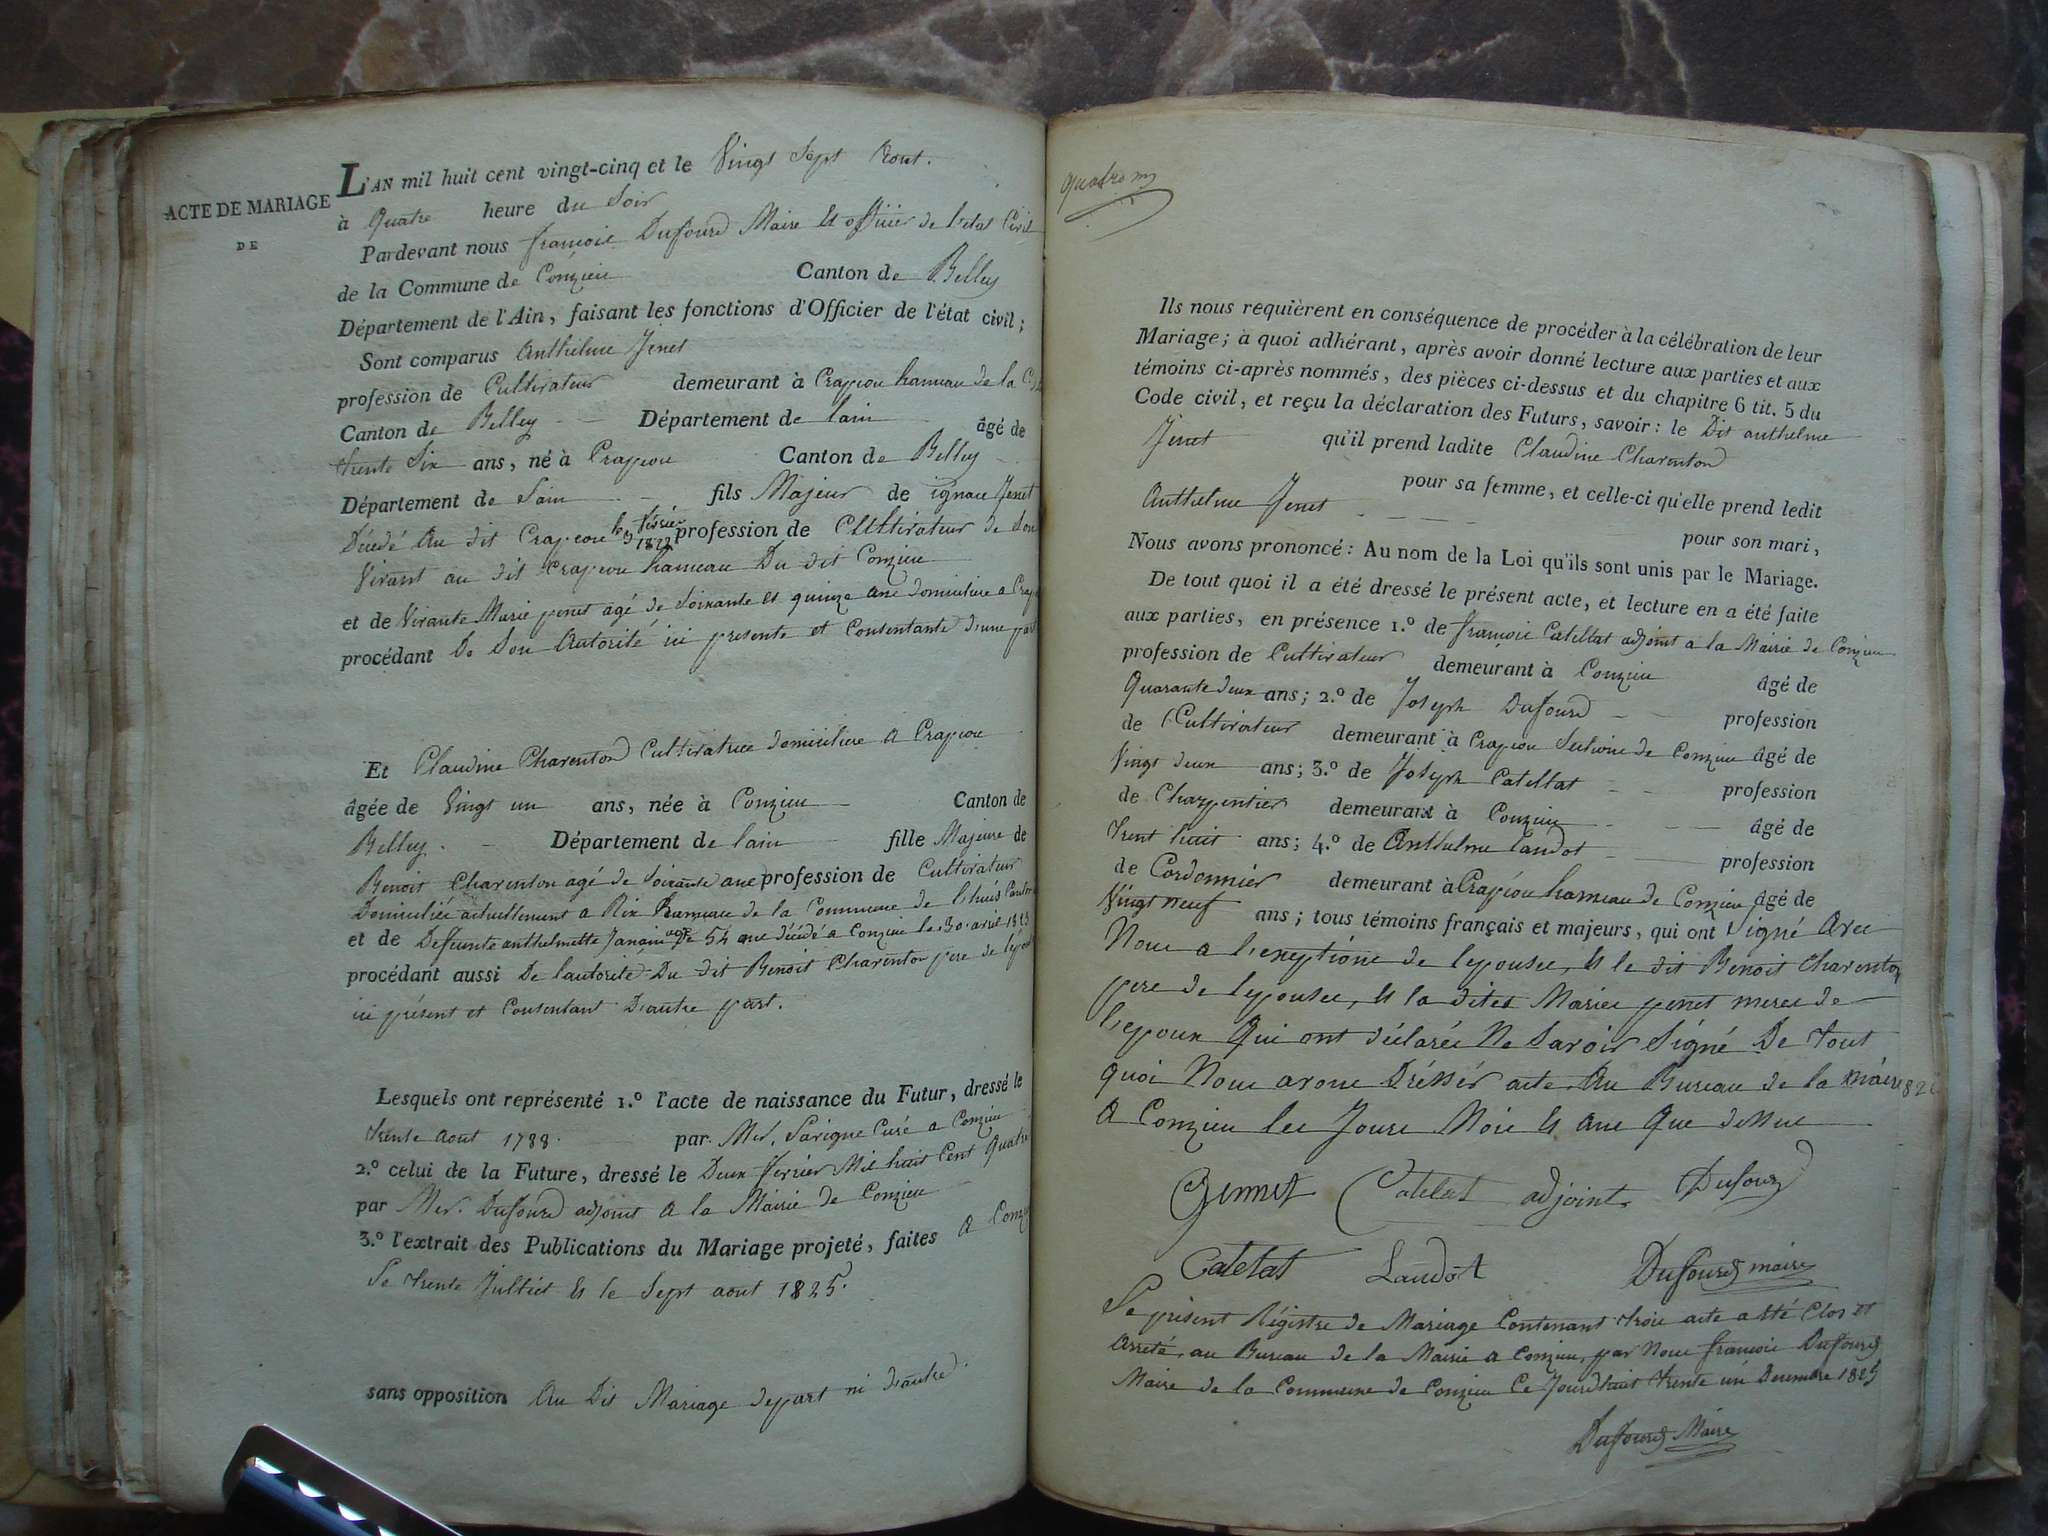 ACTE DE MARIAGE
DE
L'AN mil huit cent vingt-cinq et le Vingt Sept Aout.
à Quatre heure du Soir
Pardevant nous francois Dufourd Maire Et officier de l'etat Civil
de la Commune de Conzieu Canton de Belley
Département de l'Ain, faisant les fonctions d'Officier de l'état civil;
Sont comparus Anthelme Jenet
profession de Cultivateur demeurant à Crapeou hameau de la
Canton de Belley Département de lain âgé de
trente Six ans, né à Crapeou Canton de Belley
Département de Lain fils Majeur de ignace Jenet
Décédé Au dit Crapeou le 9 Février 1822 profession de Cultivateur de Son
Vivant au dit Crapeou hameau Du dit Conzieu
et de Vivante Marie penet âgé de Soixante et quinze ans domiciliee a
procédant De Son Autorité ici presente et Consentante d'une part
Et Claudine Charenton Cultivatrice domiciliee A Crapeou
âgée de Vingt un ans, née à Conzieu Canton de
Belley. Département de lain fille Majeure de
Benoit Charenton agé de Soixante ans profession de Cultivateur
Domiciliée actuellement a Rix hameau de la Commune de Lhuis
et de Defeunte anthelmette Janain age De 54 ans décédé a Conzieu le 30 avril 1823
procédant aussi De lautorité Du dit Benoit Charenton pere de
ici présent et Consentant D'autre part.
Lesquels ont représenté 1.º l'acte de naissance du Futur, dressé le
trente Aout 1788. par Mer. Savigne Curé a Conzieu
2.º celui de la Future, dressé le Deux fevrier Mil huit Cent Quatre
par Mer. Dufourd adjoint A la Mairie de Conzieu
3.º l'extrait des Publications du Mariage projeté, faites A
Le trente Julliet Et le Sept aout 1825.
sans opposition Au Dit Mariage depart ni d'autre.
Ils nous requièrent en conséquence de procéder à la célébration de leur
Mariage; à quoi adhérant, après avoir donné lecture aux parties et aux
témoins ci-après nommés, des pièces ci-dessus et du chapitre 6 tit. 5 du
Code civil, et reçu la déclaration des Futurs, savoir: le Dit anthelme
Jenet qu'il prend ladite Claudine Charenton
pour sa femme, et celle-ci qu'elle prend ledit
Anthelme Jenet pour son mari,
Nous avons prononcé: Au nom de la Loi qu'ils sont unis par le Mariage.
De tout quoi il a été dressé le présent acte, et lecture en a été faite
aux parties, en présence 1.º de francois Catellat adjoint a la Mairie de Conzieu
profession de Cultivateur demeurant à Conzieu âgé de
Quarante deux ans; 2.º de Joseph Dufourd profession
de Cultivateur demeurant à Crapeou Sectione de Conzieu âgé de
Vingt deux ans; 3.º de Joseph Catellat profession
de Charpentier demeurant à Conzieu âgé de
trent huit ans; 4.º de Anthelme Landot profession
de Cordonnier demeurant à Crapeou hameau de Conzieu âgé de
Vingt neuf ans; tous témoins français et majeurs, qui ont Signé Avec
Nous a l'exeptione de lepousee, Et le dit Benoit Charenton
pere de lepousee, Et la dites Mariee penet meree de
lepoux Qui ont déclarée Ne Savoir Signé De tout
Quoi Nous avons Drésser acte Au Bureau de la mairie
A Conzieu les Jours Mois Et ans Que dessus
Gennet Catelat adjoint Dufourd
Catelat Landot Dufourd maire
Le présent Régistre de Mariage Contenant trois acte a été Clos et
Arrété au Bureau de la Mairie a Conzieu, par Nous francois Dufourd
Maire de la Commune de Conzieu Ce Jourdhuit trente un Decembre 1825
Dufourd Maire